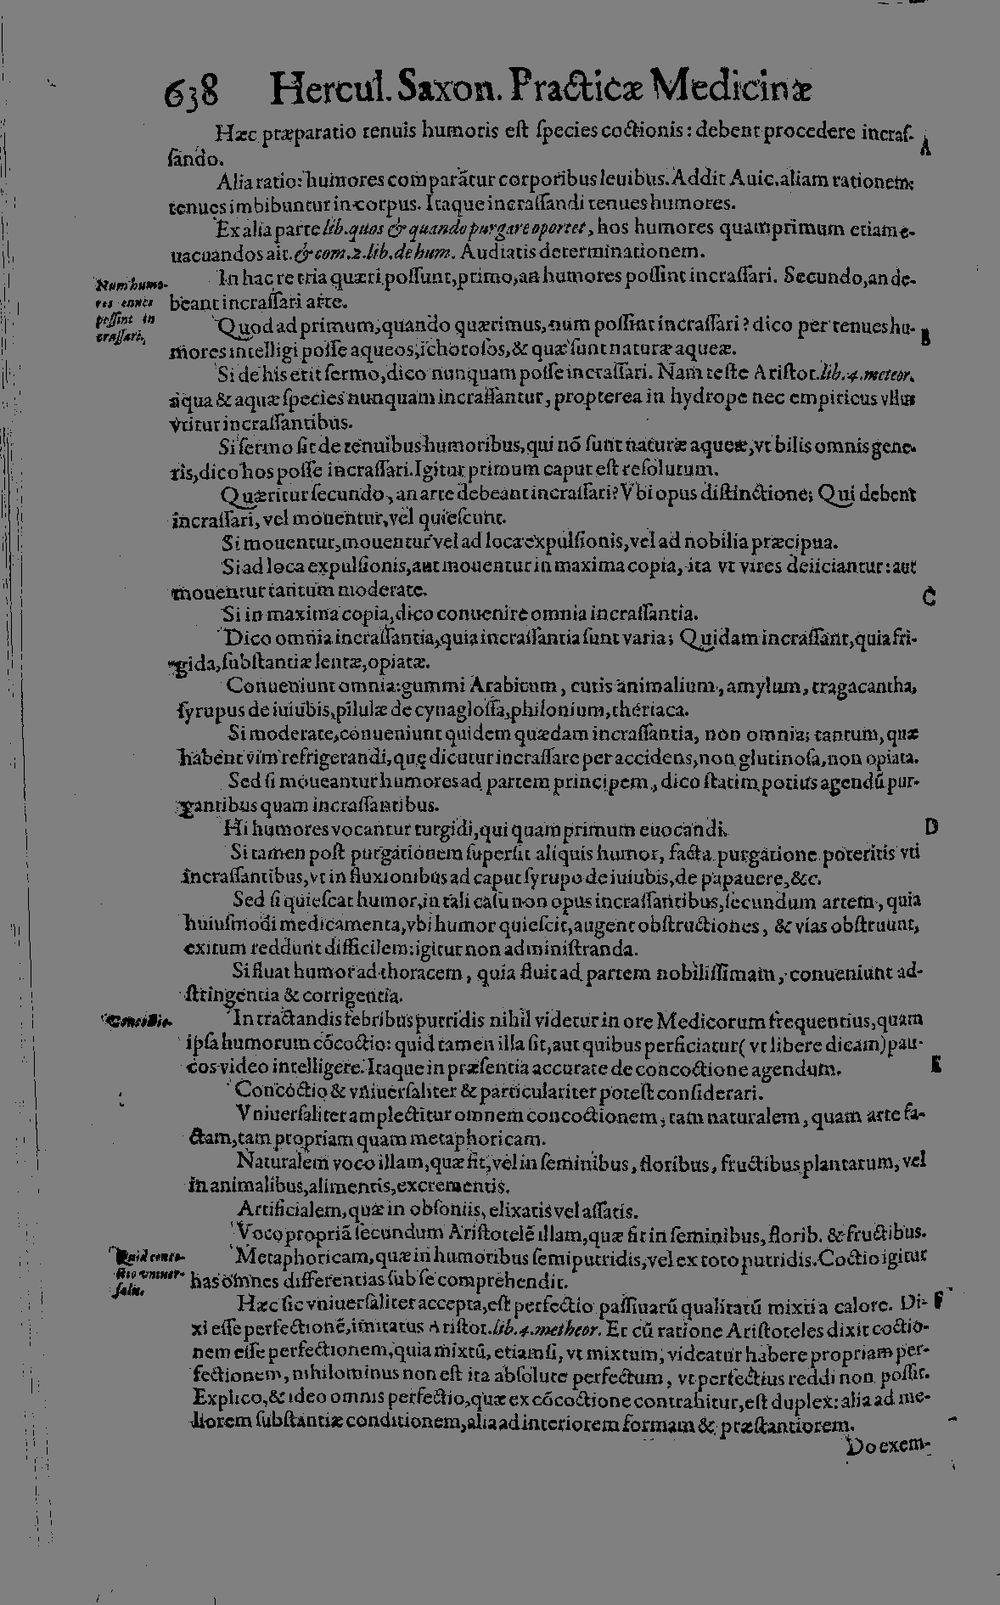 638 Hercul. Saxon. Practicæ Medicinæ
Hæc præparatio tenuis humoris est species coctionis: debent procedere incras-
sando.
A
Alia ratio: humores comparãtur corporibus leuibus. Addit Auic. aliam rationem:
tenues imbibuntur in corpus. Itaque incrassandi tenues humores.
Ex alia parte lib. quos & quando purgare oportet, hos humores quamprimum etiam e-
uacuandos ait. & com. 2. lib. de hum. Audiatis determinationem.
Num humo-
res tenues
possint in
crassari,
In hac re tria quæri possunt, primo, an humores possint incrassari. Secundo, an de-
beant incrassari arte.
Quod ad primum, quando quærimus, num possint incrassari? dico per tenues hu-
B
mores intelligi posse aqueos, ichorosos, & quæ sunt naturæ aqueæ.
Si de his erit sermo, dico nunquam posse incrassari. Nam teste Aristot. lib. 4. meteor.
aqua & aquæ species nunquam incrassantur, propterea in hydrope nec empiricus vllus
vtitur incrassantibus.
Si sermo sit de tenuibus humoribus, qui nõ sunt naturæ aqueæ, vt bilis omnis gene-
ris, dico hos posse incrassari. Igitur primum caput est resolutum.
Quæritur secundo, an arte debeant incrassari? Vbi opus distinctione; Qui debent
incrassari, vel mouentur, vel quiescunt.
Si mouentur, mouentur vel ad loca expulsionis, vel ad nobilia præcipua.
Si ad loca expulsionis, aut mouentur in maxima copia, ita vt vires deiiciantur: aut
mouentur tantum moderate.
C
Si in maxima copia, dico conuenire omnia incrassantia.
Dico omnia incrassantia, quia incrassantia sunt varia; Quidam incrassant, quia fri-
gida, substantiæ lentæ, opiatæ.
Conueniunt omnia: gummi Arabicum, cutis animalium, amylum, tragacantha,
syrupus de iuiubis, pilulæ de cynaglossa, philonium, theriaca.
Si moderate, conueniunt quidem quædam incrassantia, non omnia; tantum, quæ
habent vim refrigerandi, quę dicutur incrassare per accidens, non glutinosa, non opiata.
Sed si moueantur humores ad partem principem, dico statim potius agendũ pur-
gantibus quam incrassantibus.
Hi humores vocantur turgidi, qui quam primum euocandi.
D
Si tamen post purgationem supersit aliquis humor, facta purgatione poteritis vti
incrassantibus, vt in fluxionibus ad caput syrupo de iuiubis, de papauere, &c.
Sed si quiescat humor, in tali casu non opus incrassantibus, secundum artem, quia
huiusmodi medicamenta, vbi humor quiescit, augent obstructiones, & vias obstruunt,
exitum reddunt difficilem: igitur non administranda.
Si fluat humor ad thoracem, quia fluit ad partem nobilissimam, conueniunt ad-
stringentia & corrigentia.
Concoctio.
In tractandis febribus putridis nihil videtur in ore Medicorum frequentius, quam
ipsa humorum cõcoctio: quid tamen illa sit, aut quibus perficiatur ( vt libere dicam) pau-
cos video intelligere. Itaque in præsentia accurate de concoctione agendum.
E
Concoctio & vniuersaliter & particulariter potest considerari.
Vniuersaliter amplectitur omnem concoctionem, tam naturalem, quam arte fa-
ctam, tam propriam quam metaphoricam.
Naturalem voco illam, quæ fit, vel in seminibus, floribus, fructibus plantarum, vel
in animalibus, alimentis, excrementis.
Artificialem, quæ in obsoniis, elixatis vel assatis.
Voco propriã secundum Aristotelẽ illam, quæ fit in seminibus, florib. & fructibus.
Quid conco-
ctio vniuer-
salis.
Metaphoricam, quæ in humoribus semiputridis, vel ex toto putridis. Coctio igitur
has omnes differentias sub se comprehendit.
Hæc sic vniuersaliter accepta, est perfectio passiuarũ qualitatũ mixti a calore. Di-
F
xi esse perfectionẽ, imitatus Aristot. lib. 4. metheor. Et cũ ratione Aristoteles dixit coctio-
nem esse perfectionem, quia mixtũ, etiamsi, vt mixtum, videatur habere propriam per-
fectionem, nihilominus non est ita absolute perfectum, vt perfectius reddi non possit.
Explico, & ideo omnis perfectio, quæ ex cõcoctione contrahitur, est duplex: alia ad me-
liorem substantiæ conditionem, alia ad interiorem formam & præstantiorem.
Do exem-